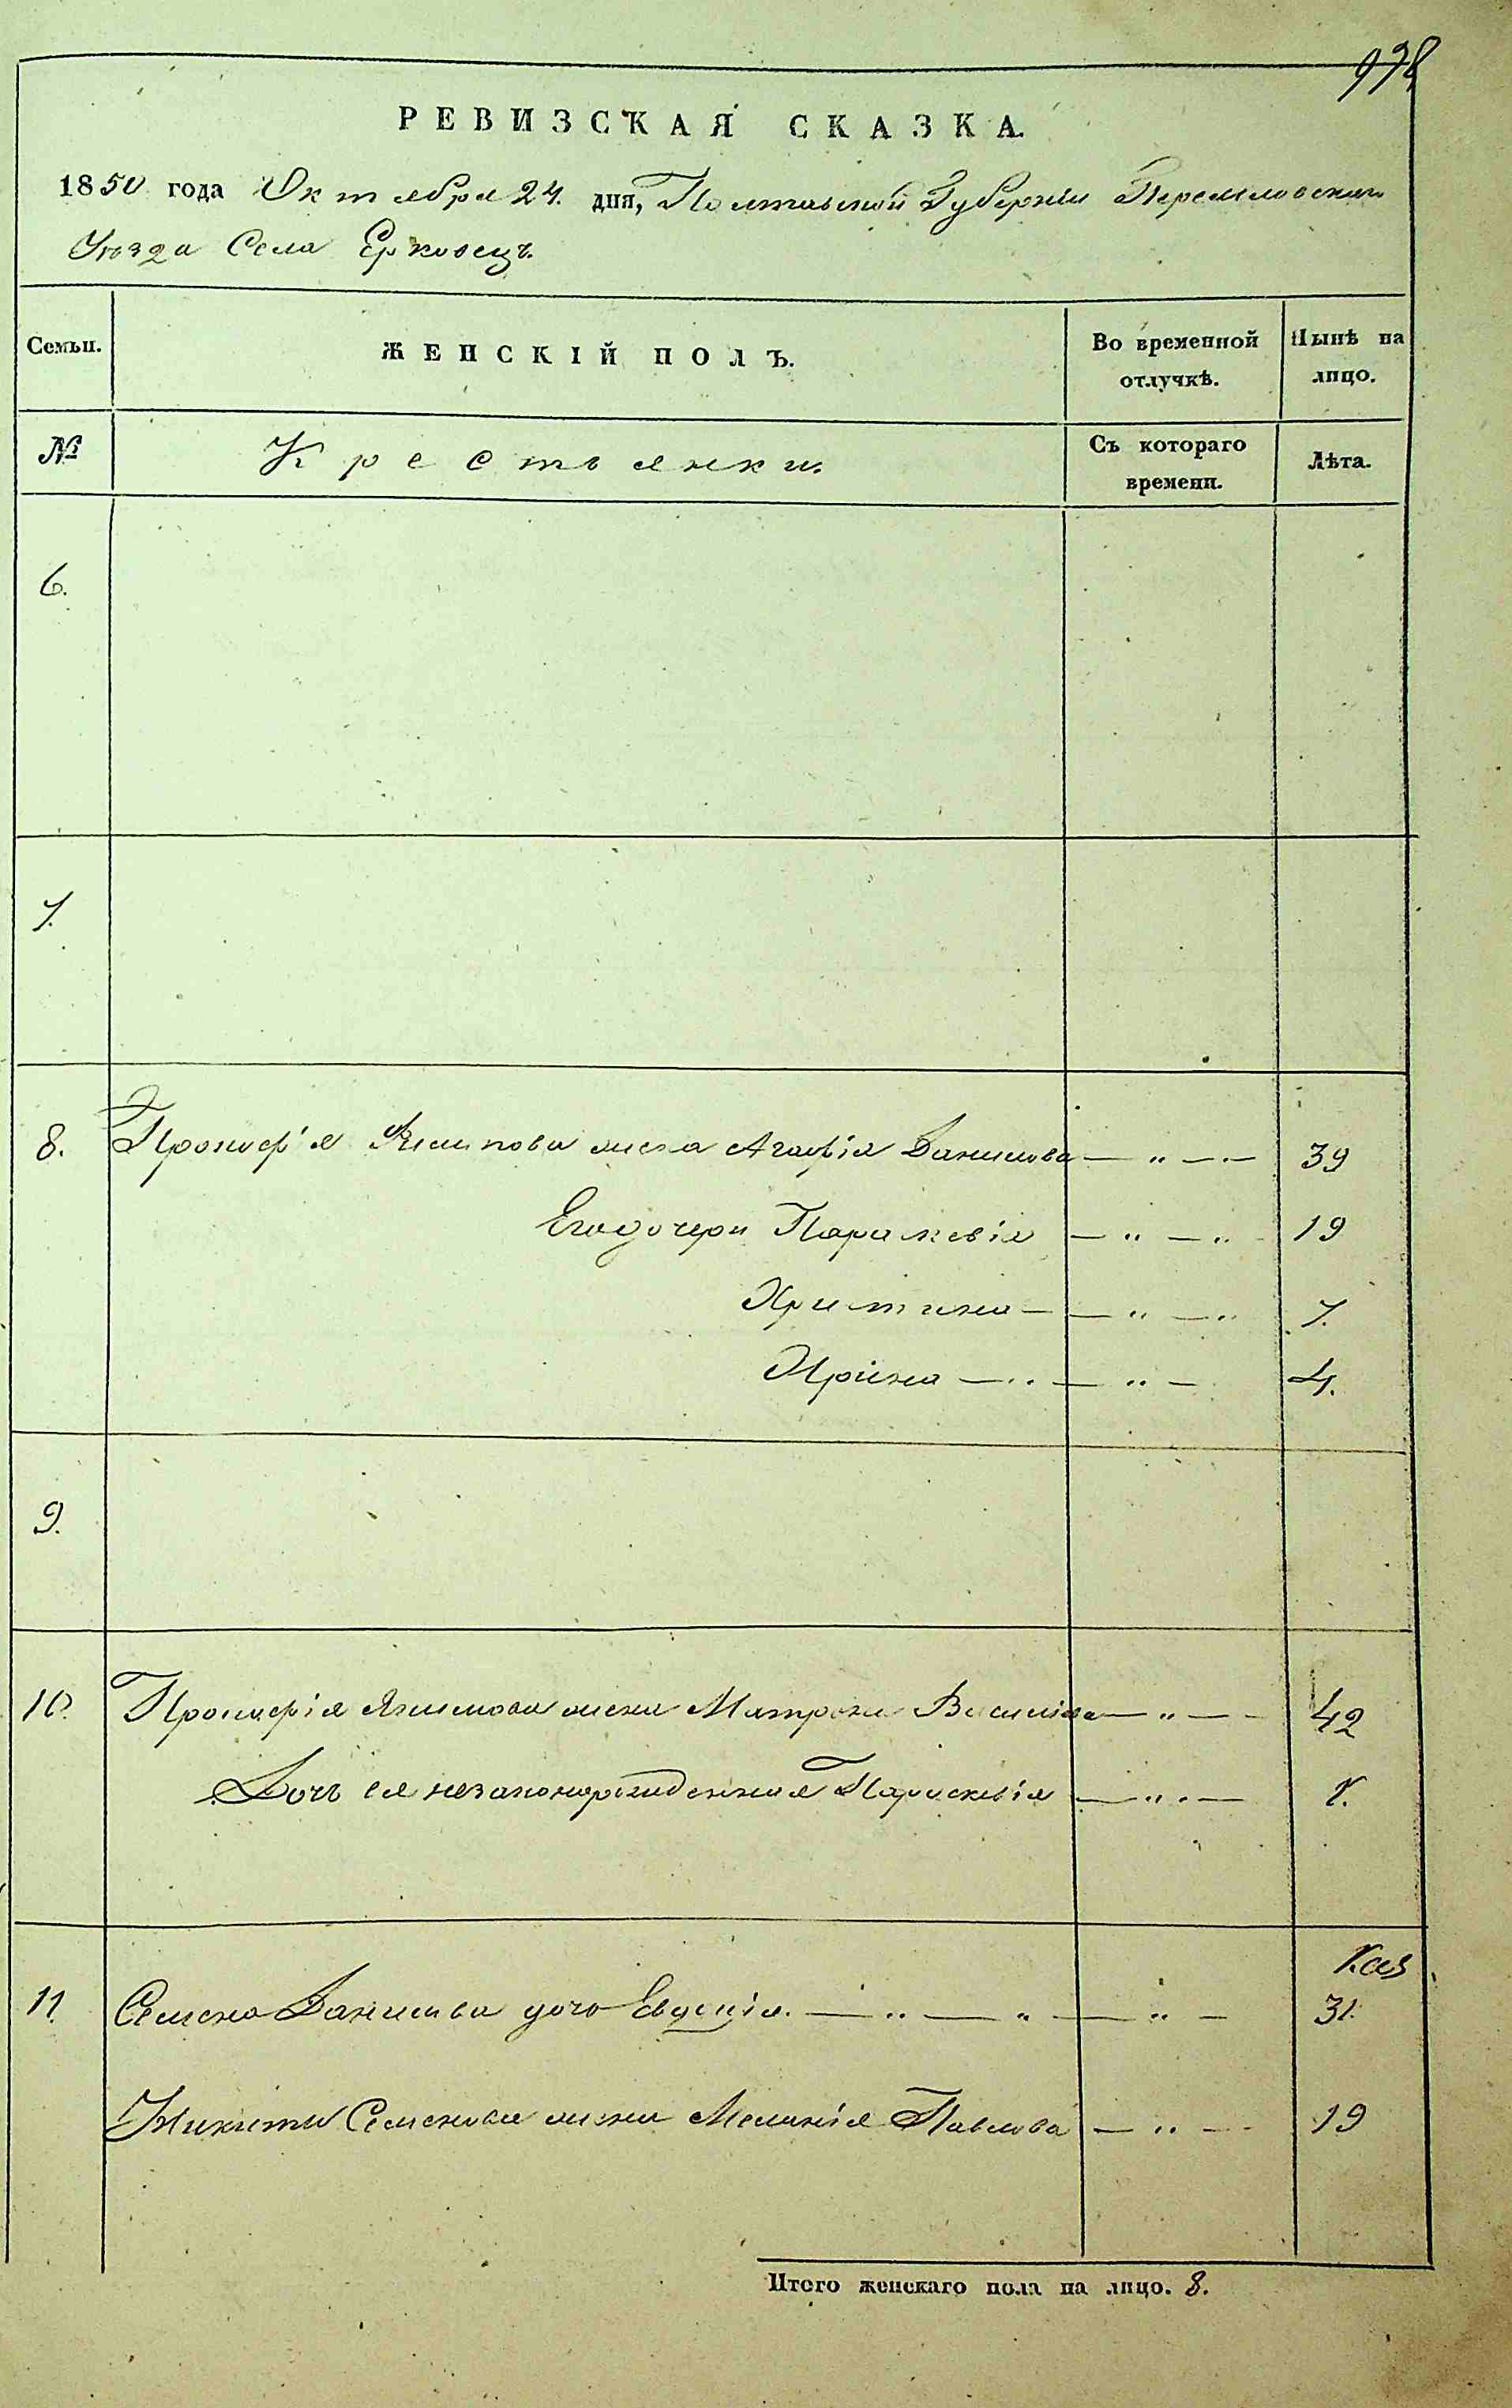 978
РЕВИЗСКАЯ СКАЗКА
1850 года Октября 24. дня, Полтавской Губерніи Переяславскаго
Уѣзда Села Ерковецъ.
Семьи.
ЖЕНСКІЙ ПОЛЪ.
Во временной отлучкѣ.
Нынѣ на лицо.
№
Крестьянки.
Съ котораго времени.
Лѣта.
6.
7.
8. Прокофія Филипова жена Агафія Данилова — „ — 39
Его дочери Параскевія — „ — „ 19
Христина — — „ — „ 7.
Ирина — „ — „ — 4.
9.
10. Прокофія Якимова жена Матрона Василіева — „ — 42
Дочь ея незаконорожденная Параскевія — „ — 1.
11. Семена Данилова дочь Евдокія. — „ — „ — „ — 31.
Никиты Семенова жена Меланія Павлова — „ — 19
Итого женскаго пола на лицо. 8.